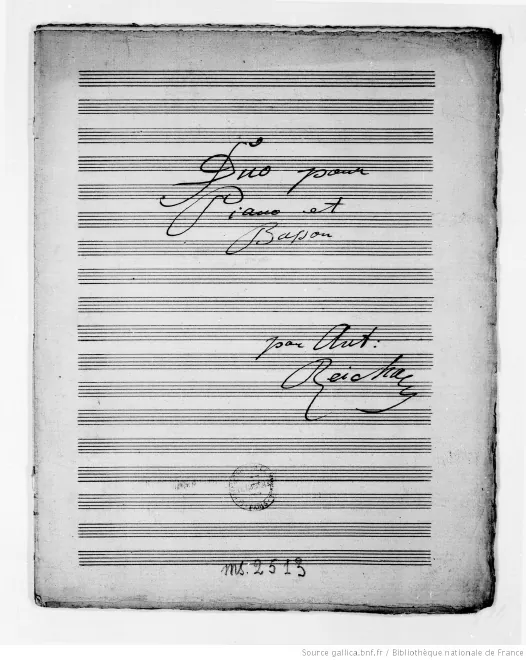 Duo pour
Piano et
Basson
par Ant:
Reicha
ms. 2513
Source gallica.bnf.fr / Bibliothèque nationale de France